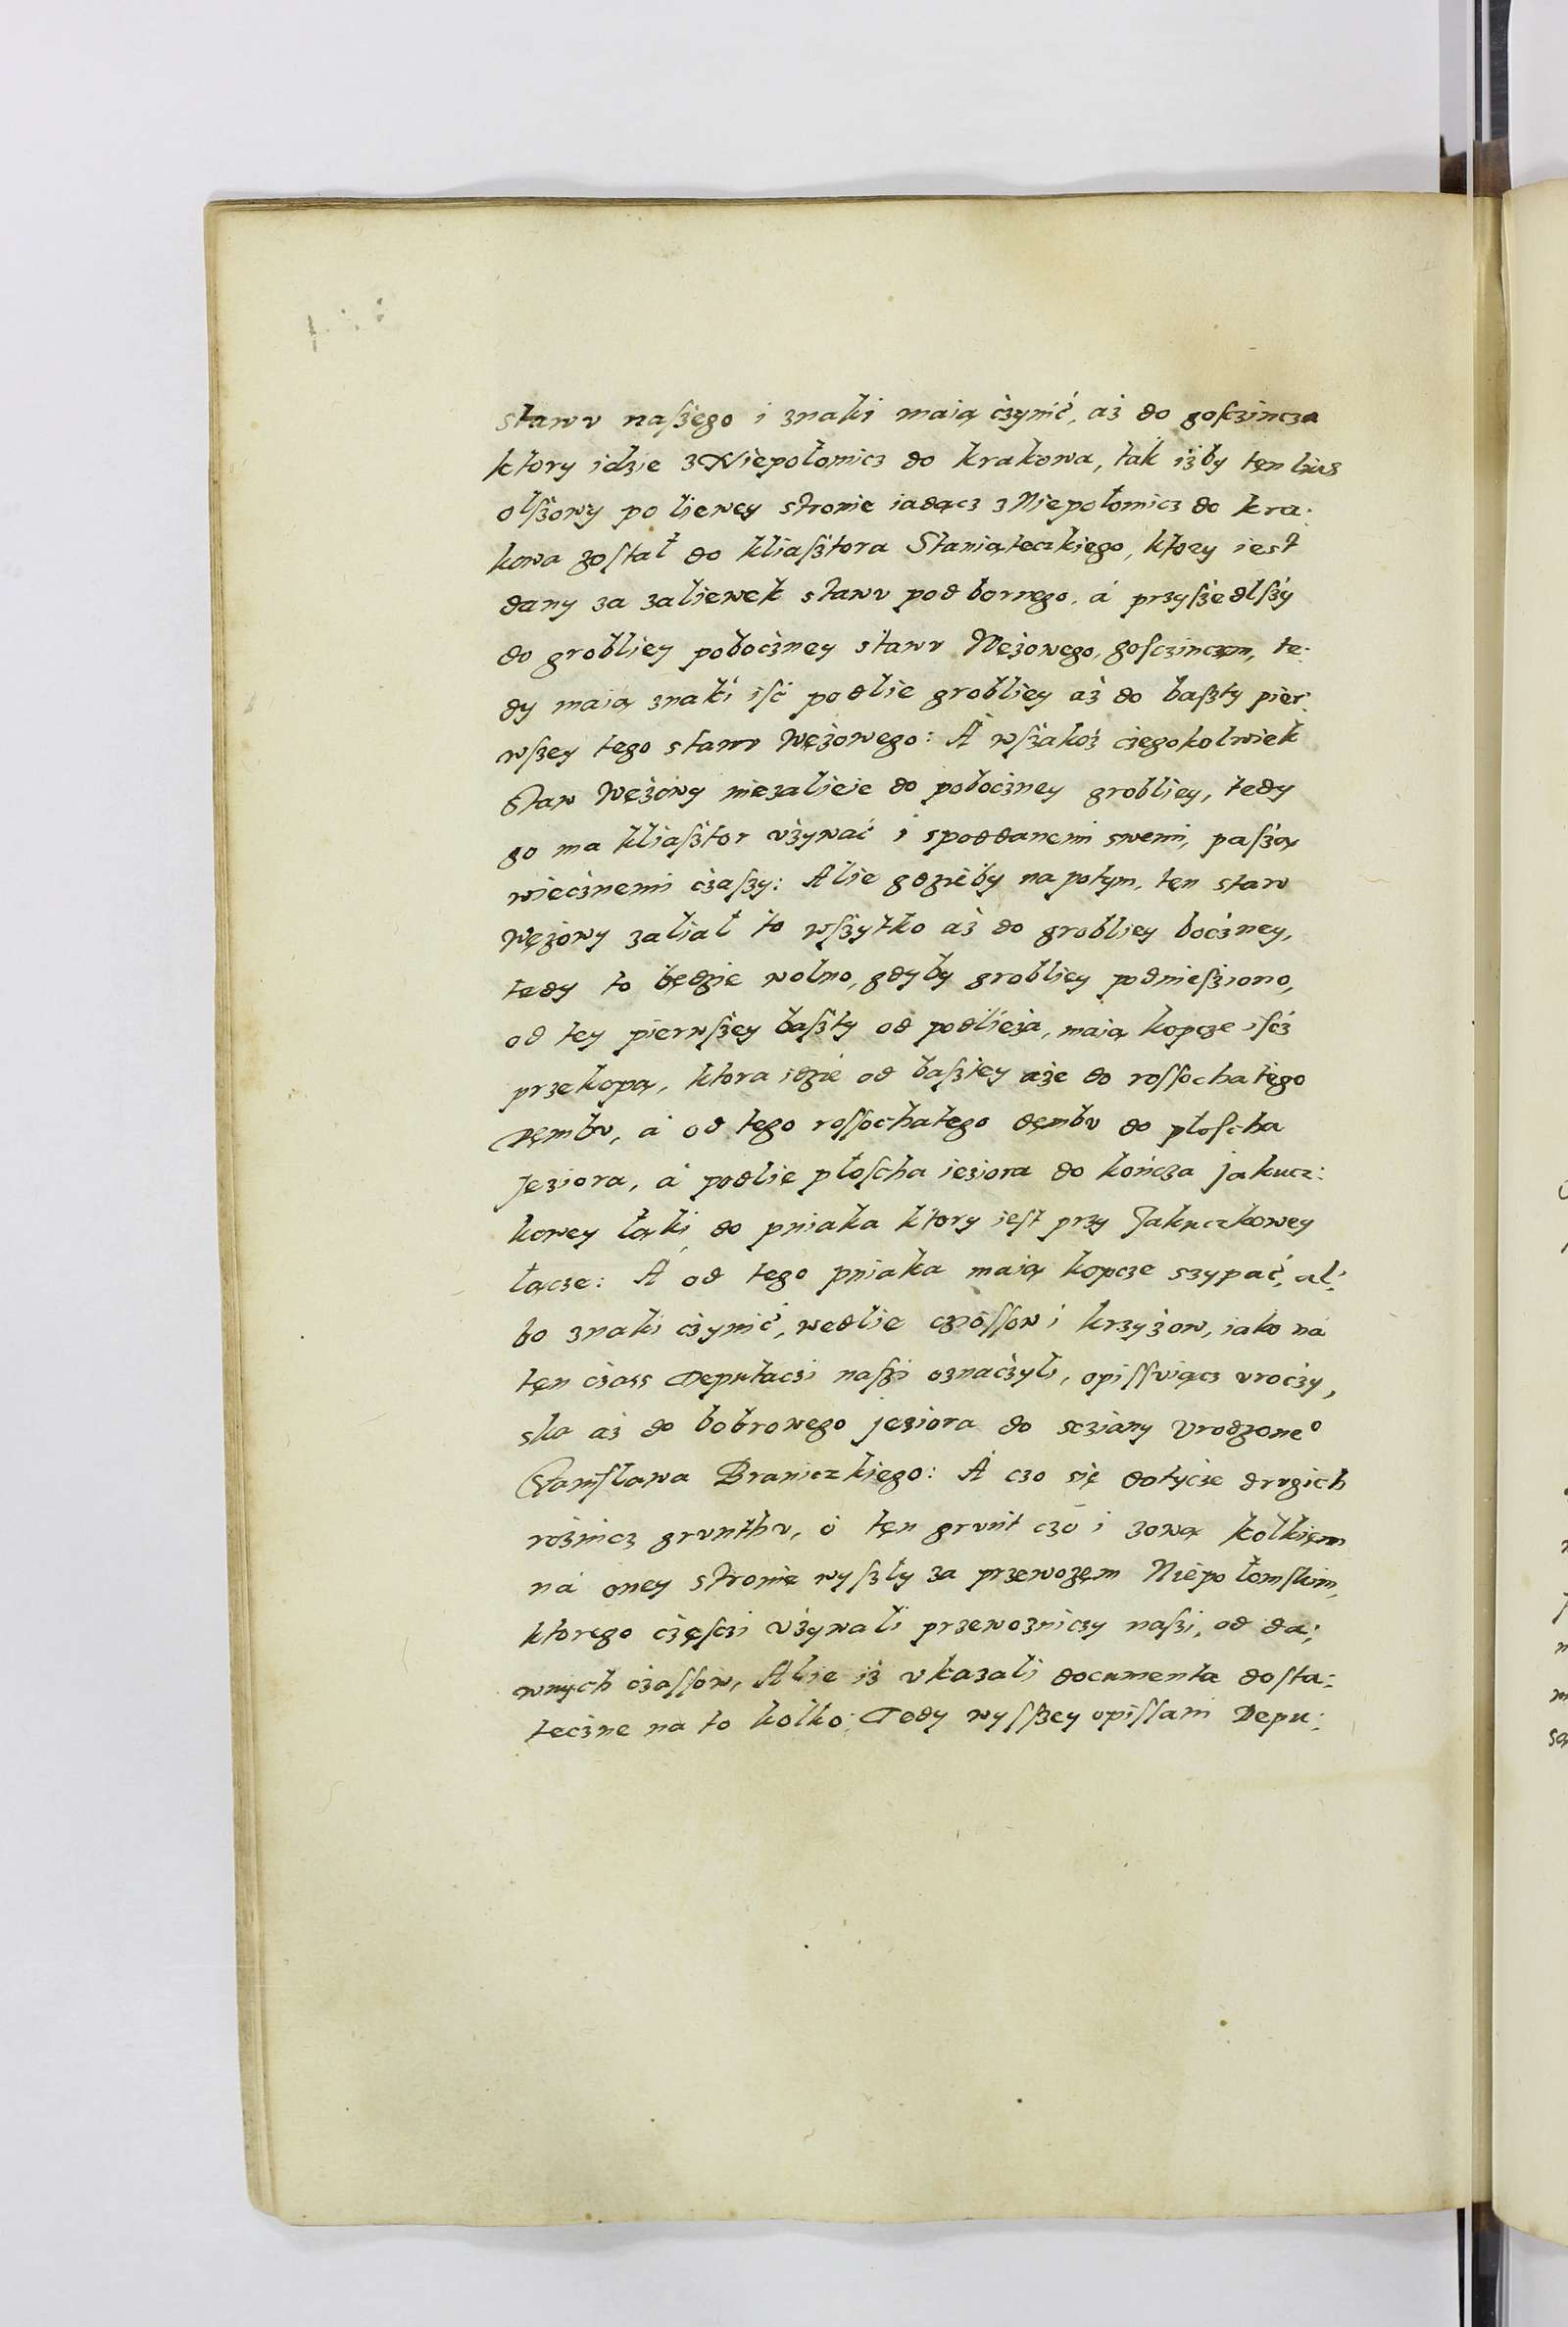 stawu naſzego i znaki maią czynić, aż do goſczincza
ktory idzie z Niepołomicz do krakowa, tak iżby tęn lias
olſzowy po liewey stronie iadącz z Niepołomicz do kra:
kowa zoſtał do kliaſztora Staniąteczkiego, ktory iest
dany za zaliewek stawu podbornego, á przyſzedlſzy
do grobliey poboczney stawu Wężowego, goſczinczem, te:
dy maią znaki iść podlie grobliey aż do baſzty pier:
wſzey tego stawu Wężowego: A wſzakoż czegokolwiek
Staw Wężowy niezalieie do poboczney grobliey, tedy
go ma kliaſztor użynać i spoddanemi swemi, paſzą
wiecznemi czaſzy: Alie gdzieby napotym, tęn staw
Wężowy zaliał to wſzytko aż do grobliey boczney,
tedy to będzie wolno, gdyby grobliey podnieſziono,
od tey pierwſzey baſzty od podlieża, maią kopcze iſcz
przekopą, ktora idzie od baſztey aże do roſſochatego
Dęmbu, á od tego roſſochatego dęmbu do płoſcha
Jeziora, á podlie płoſcha ieziora do kończa Jakucz:
kowey łąki do pniaka ktory ieſt przy Jakuczkowey
łącze: A od tego pniaka maią kopcze szypać, al:
bo znaki czynić, wedlie czioſſow i krzyżow, iako na
tęn czass Deputaczi naſzi oznaczyli, opiſſuiącz uroczy,
ska aż do bobrowego jeziora do scziany Urodzoneº
Staniſlawa Braniczkiego: A czo się dotycze drugich
rożnicz grunthu, o tęn grunt czo i zową kolkięm
ná oney stronie wyſzły za przewozęm Niepołomſkim,
ktorego częſczi używali przewozniczy naſzi, od da:
wnych czaſſow, Alie iż ukazali documenta doſta:
teczne na to kolko: Tedy wyſſzey opiſſani Depu: